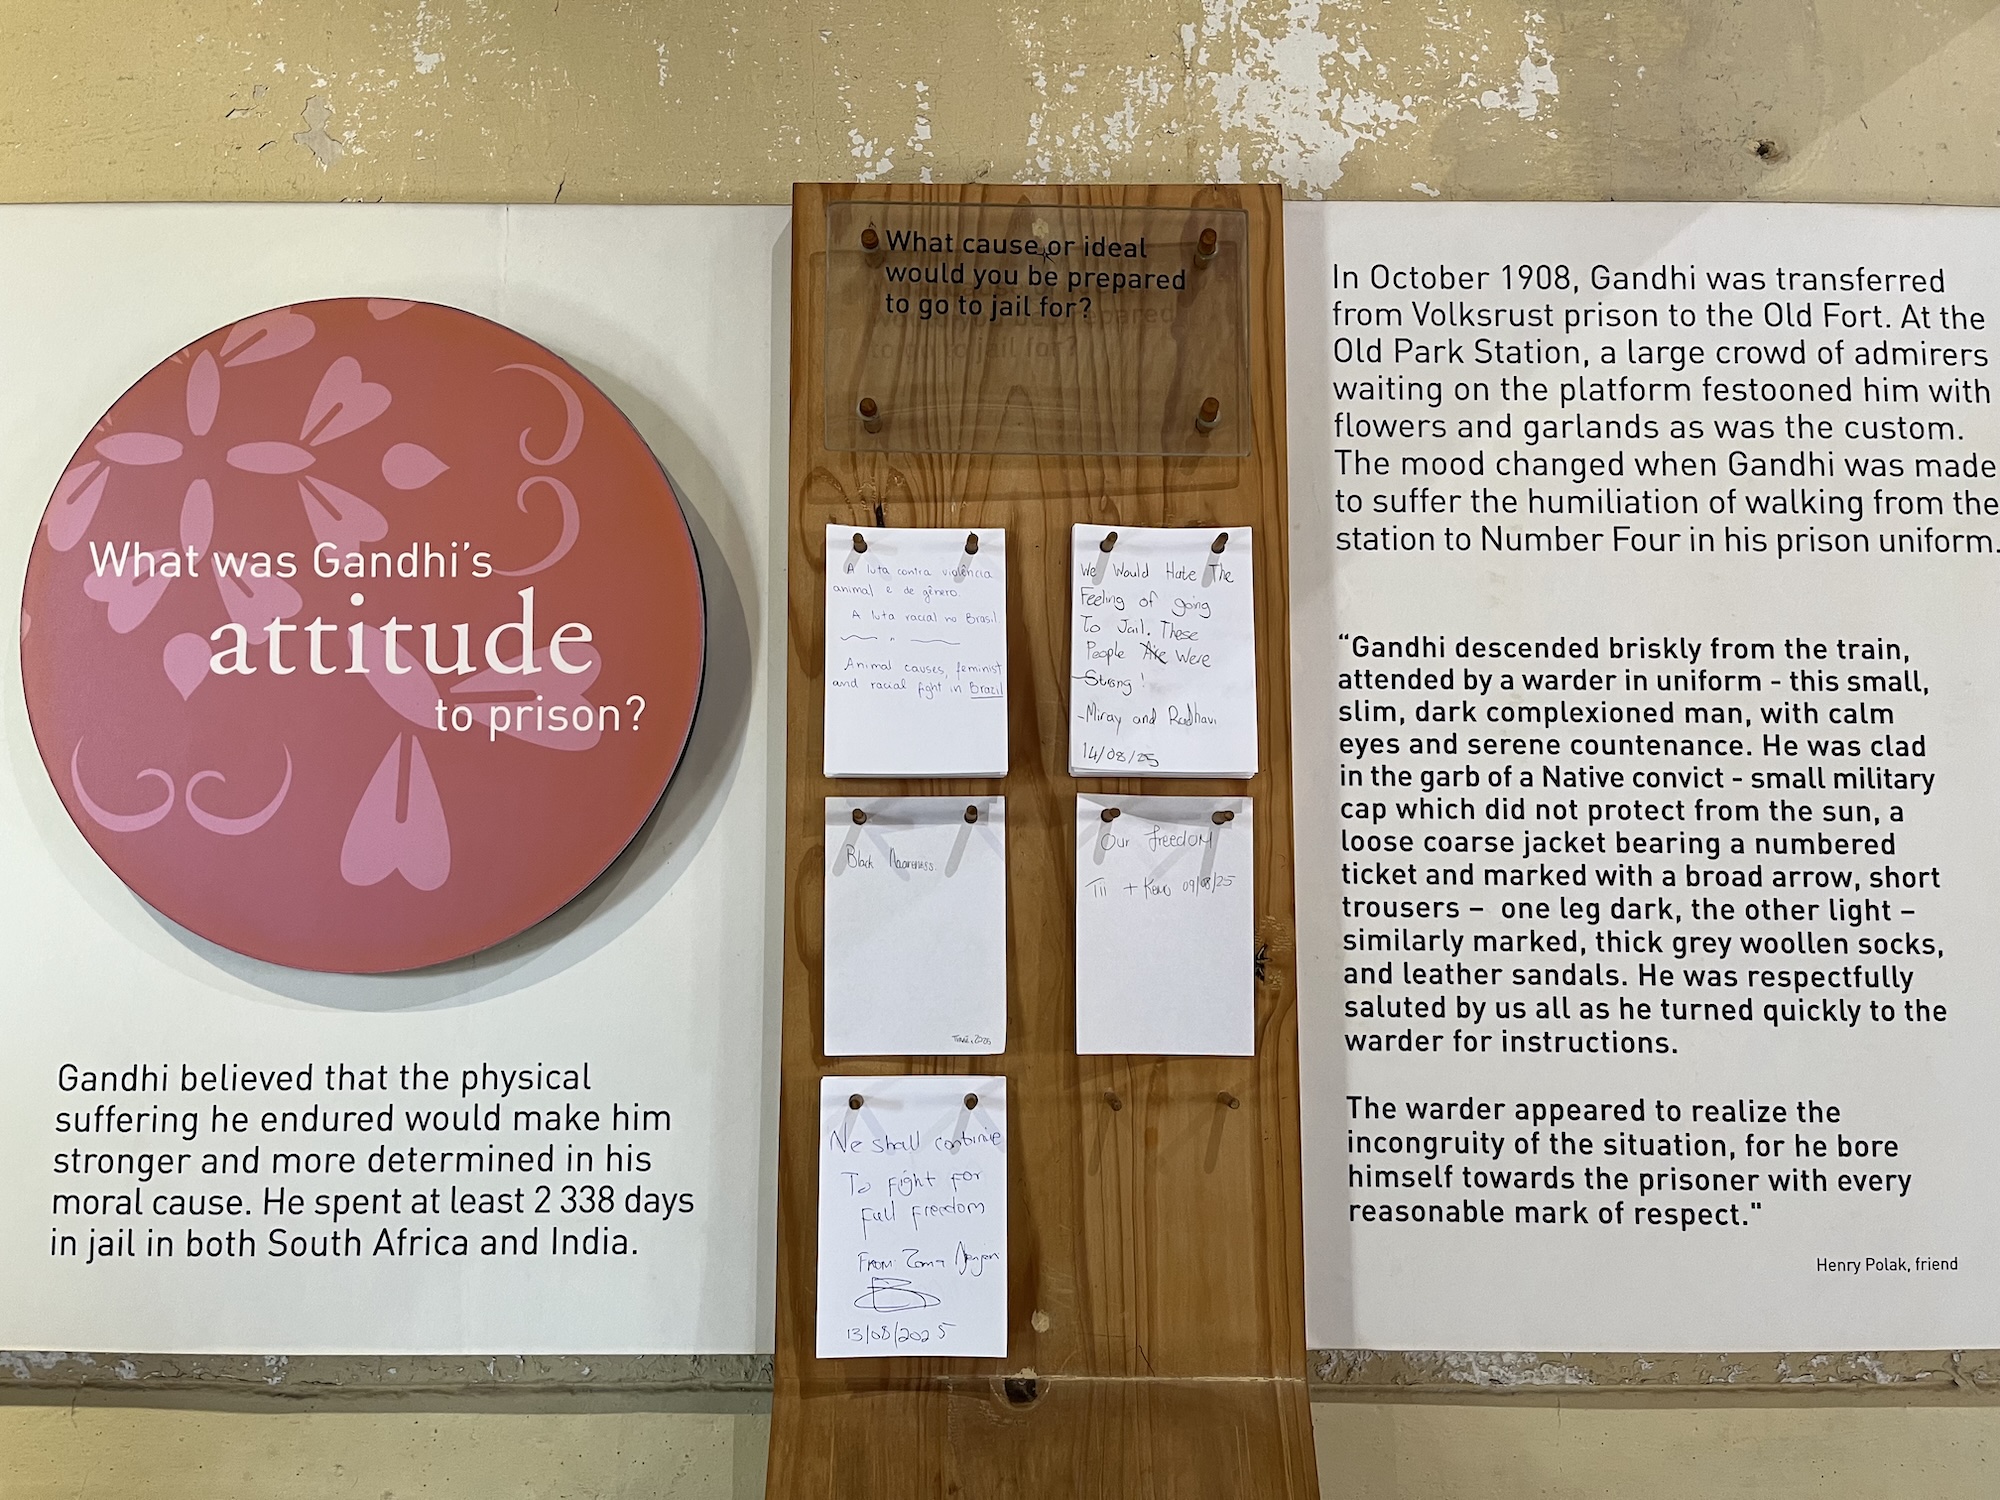 What was Gandhi's
attitude
to prison?
Gandhi believed that the physical
suffering he endured would make him
stronger and more determined in his
moral cause. He spent at least 2 338 days
in jail in both South Africa and India.
What cause or ideal
would you be prepared
to go to jail for?
A luta contra violência
animal e de gênero.
A luta racial no Brasil.
Animal causes, feminist
and racial fight in Brazil
We Would Hate The
Feeling of going
To Jail. These
People Are Were
Strong!
-Miray and Radhavi
14/08/25
Black Awareness.
2025
Our freedom
Tii + 09/08/25
We shall continue
To fight for
full freedom
From
13/08/2025
In October 1908, Gandhi was transferred
from Volksrust prison to the Old Fort. At the
Old Park Station, a large crowd of admirers
waiting on the platform festooned him with
flowers and garlands as was the custom.
The mood changed when Gandhi was made
to suffer the humiliation of walking from the
station to Number Four in his prison uniform.
"Gandhi descended briskly from the train,
attended by a warder in uniform - this small,
slim, dark complexioned man, with calm
eyes and serene countenance. He was clad
in the garb of a Native convict - small military
cap which did not protect from the sun, a
loose coarse jacket bearing a numbered
ticket and marked with a broad arrow, short
trousers – one leg dark, the other light –
similarly marked, thick grey woollen socks,
and leather sandals. He was respectfully
saluted by us all as he turned quickly to the
warder for instructions.
The warder appeared to realize the
incongruity of the situation, for he bore
himself towards the prisoner with every
reasonable mark of respect."
Henry Polak, friend